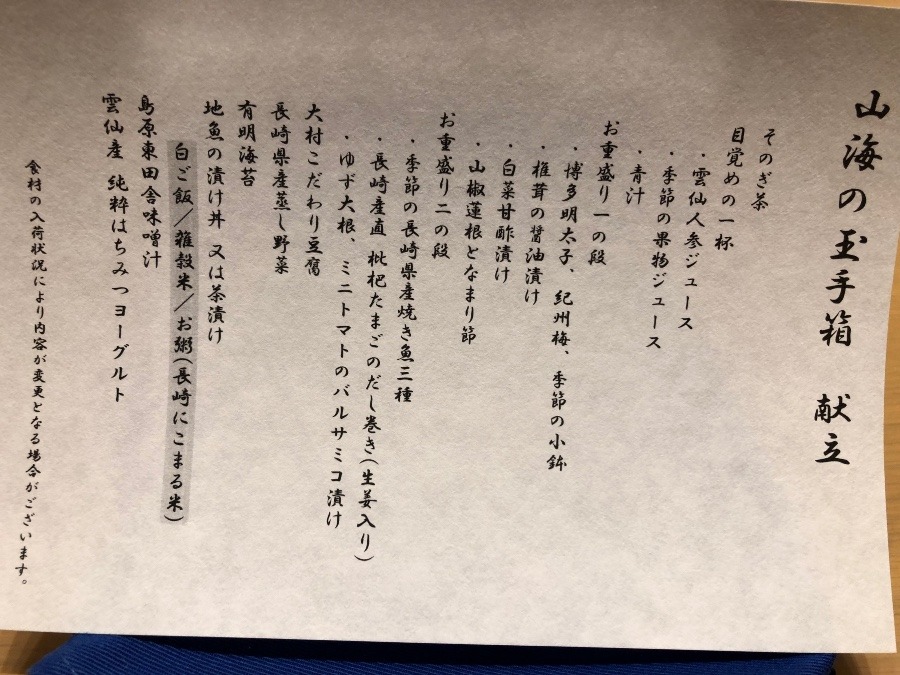 山海の玉手箱 献立
そのぎ茶
目覚めの一杯
・雲仙人参ジュース
・季節の果物ジュース
・青汁
お重盛り一の段
・博多明太子、紀州梅、季節の小鉢
・椎茸の醤油漬け
・白菜甘酢漬け
・山椒蓮根となまり節
お重盛り二の段
・季節の長崎県産焼き魚三種
・長崎産直 枇杷たまごのだし巻き(生姜入り)
・ゆず大根、ミニトマトのバルサミコ漬け
大村こだわり豆腐
長崎県産蒸し野菜
有明海苔
地魚の漬け丼 又は茶漬け
白ご飯/雑穀米/お粥(長崎にこまる米)
島原東田舎味噌汁
雲仙産 純粋はちみつヨーグルト
食材の入荷状況により内容が変更となる場合がございます。